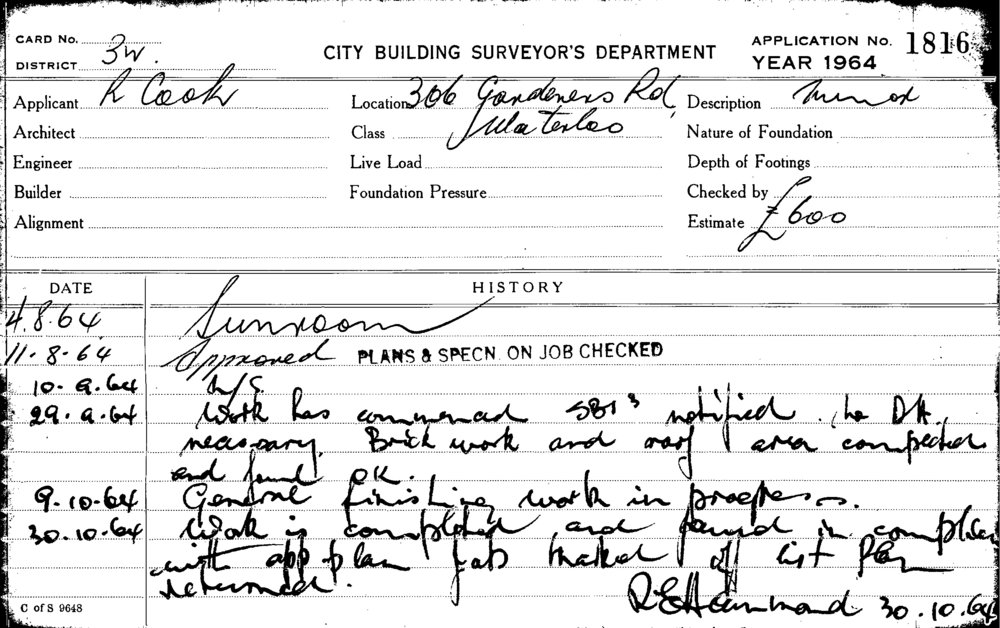 CARD No.
DISTRICT 3w.
CITY BUILDING SURVEYOR'S DEPARTMENT
APPLICATION No. 1816
YEAR 1964
Applicant R Cook
Location 306 Gardeners Rd,
Description Minor
Architect
Class Waterloo
Nature of Foundation
Engineer
Live Load
Depth of Footings
Builder
Foundation Pressure
Checked by
Alignment
Estimate £600
DATE
HISTORY
4.8.64 Sunroom
11-8-64 Approved PLANS & SPECN. ON JOB CHECKED
10-9-64 N/S.
29.9.64 Work has commenced notified. No DH.
necessary. Brick work and roof area completed
and found OK.
9.10-64 General finishing work in progress.
30.10.64 Work is completed and found in
with app plan job marked off list Plan
returned.
R E Hammond 30.10.64
C of S 9648